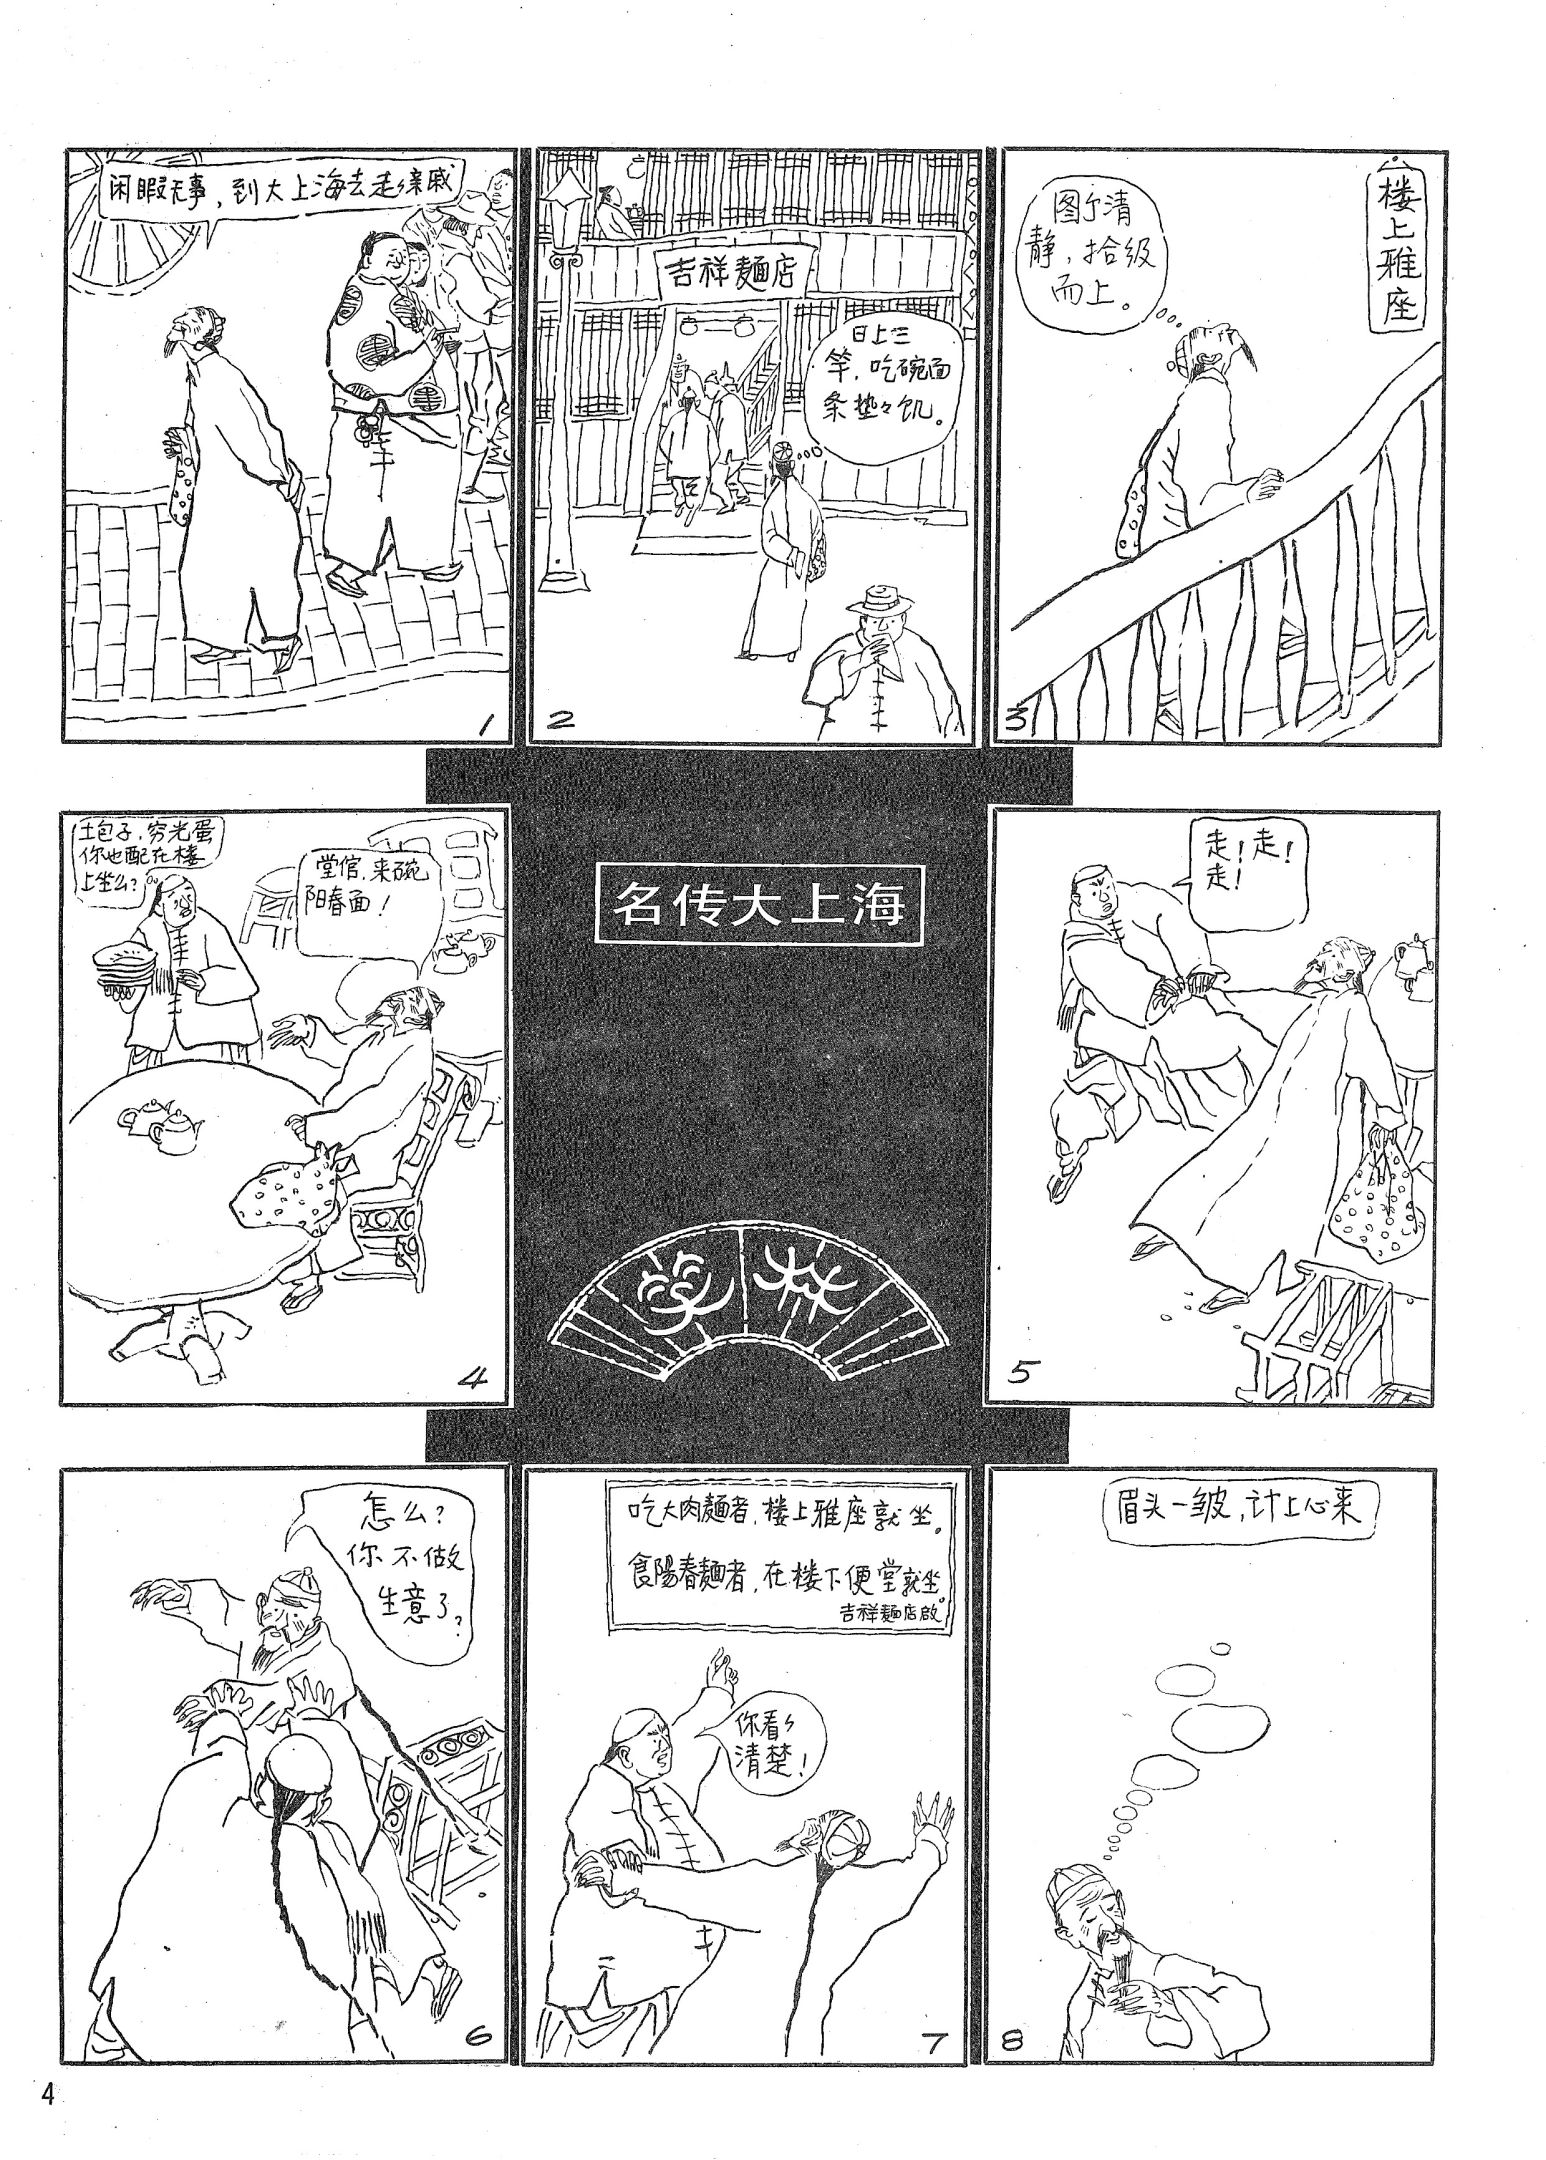 闲暇无事，到大上海去走々亲戚
1
吉祥麺店
日上三
竿，吃碗面
条垫々饥。
2
楼上雅座
图个清
静，拾级
而上。
3
土包子，穷光蛋
你也配在楼
上坐么？
堂倌，来碗
阳春面！
4
名传大上海
笑林
走！走！
走！
5
怎么？
你不做
生意了？
6
吃大肉麺者，楼上雅座就坐。
食陽春麺者，在楼下便堂就坐。
吉祥麺店啟
你看々
清楚！
7
眉头一皱，计上心来
8
4